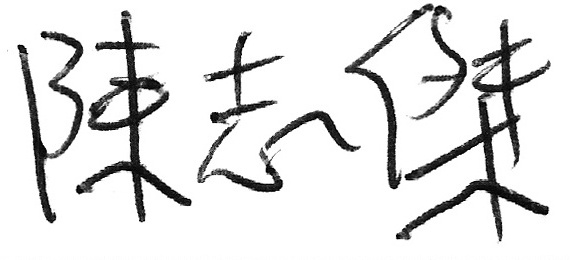 陳志傑